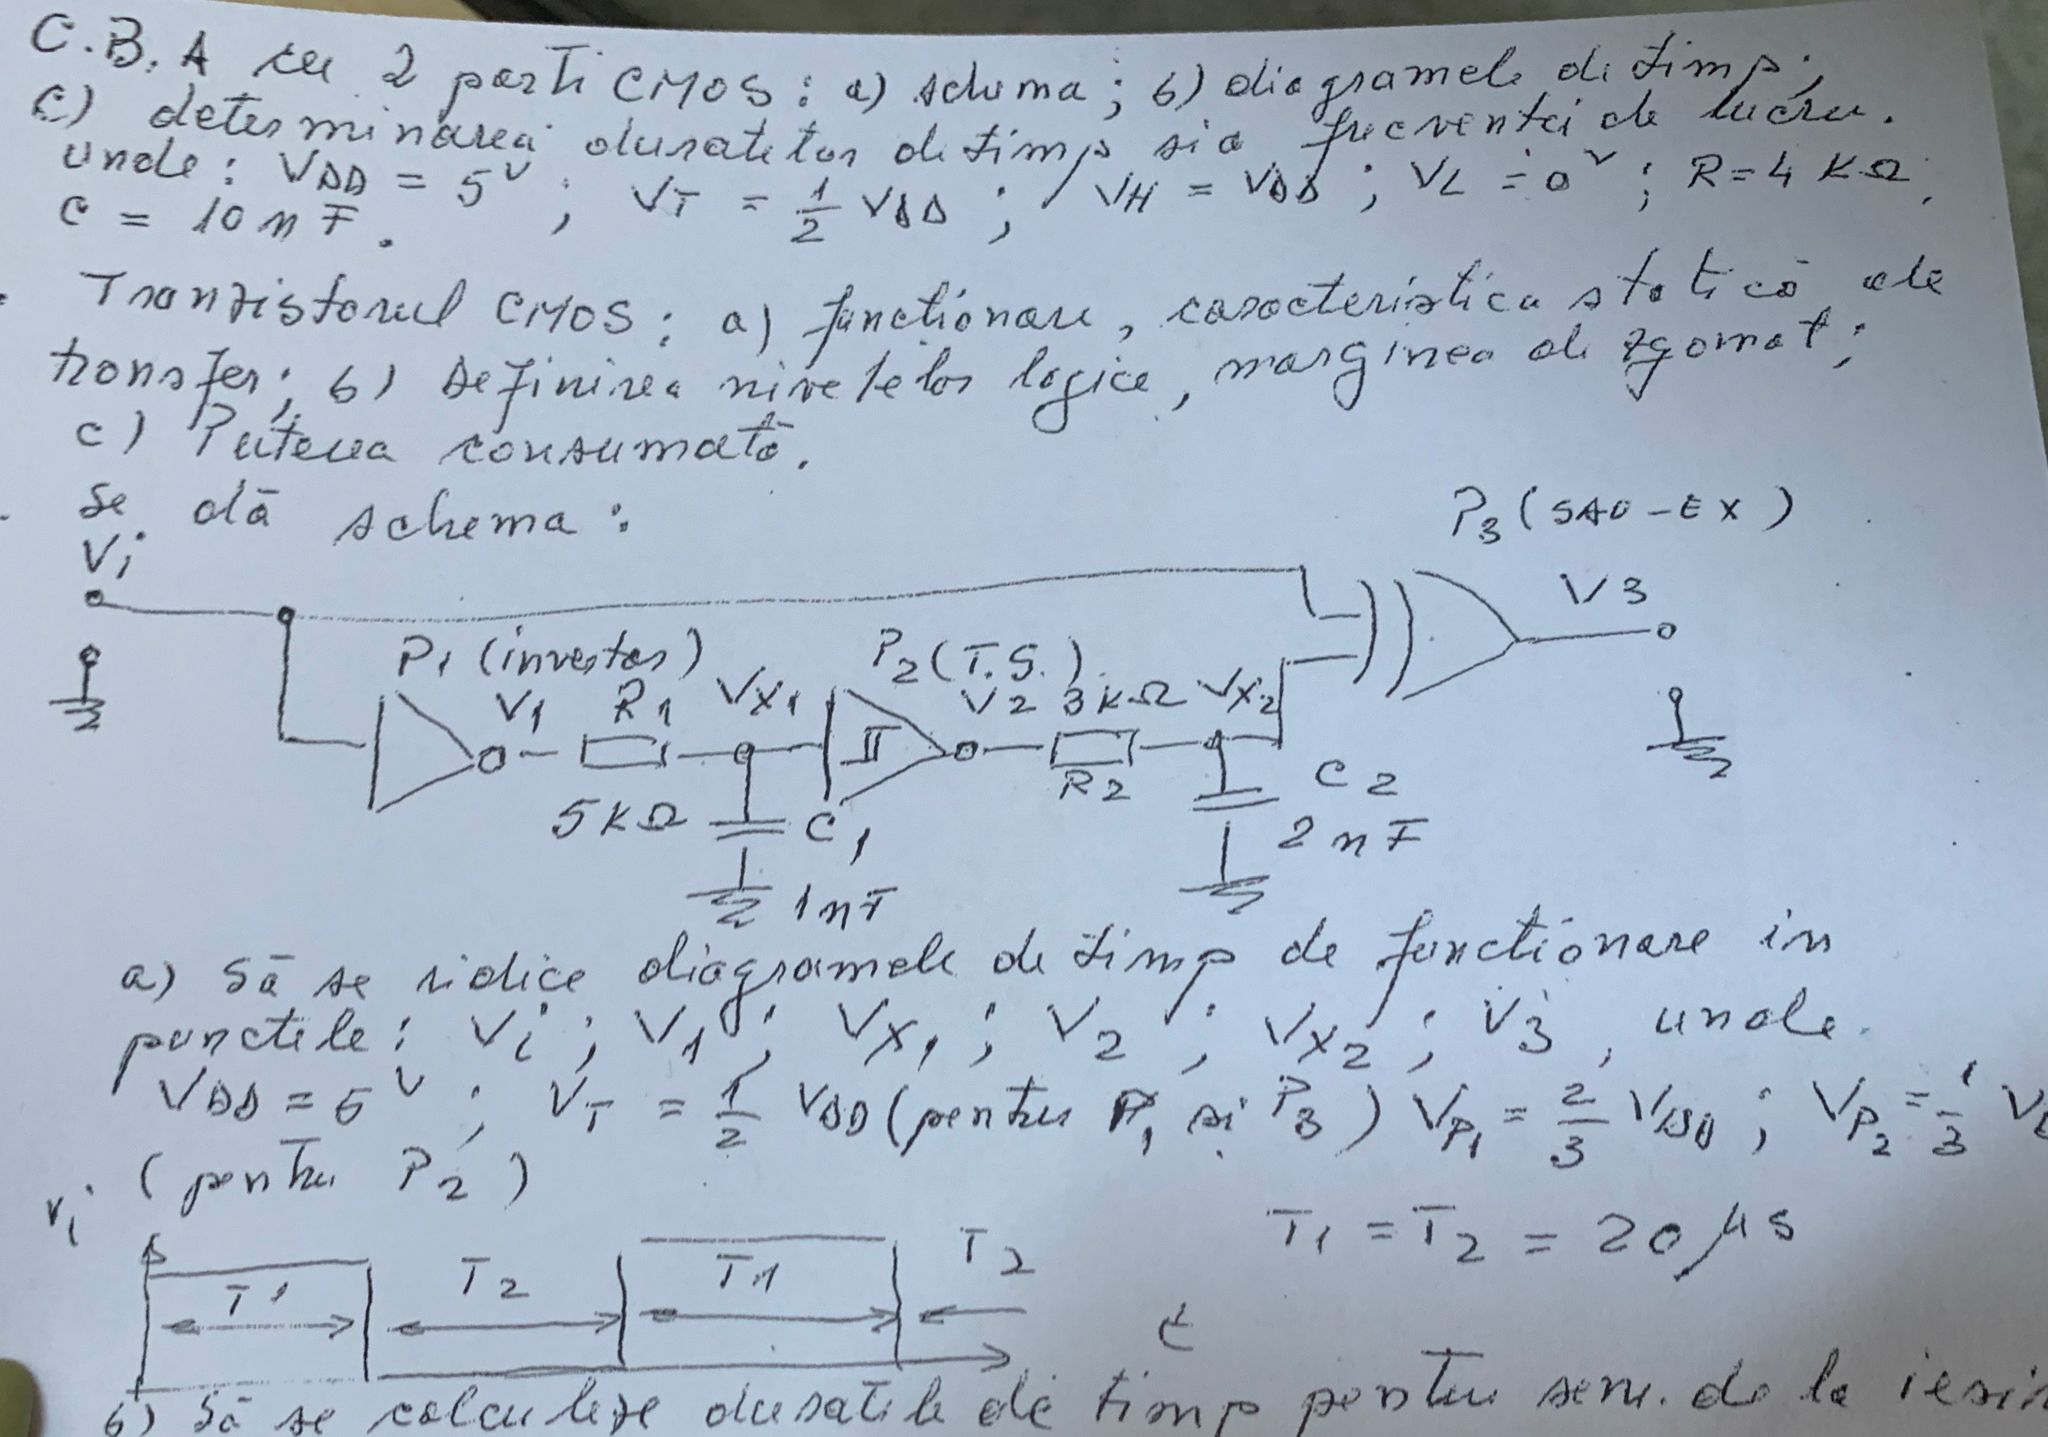 C.B.A cu 2 porti CMOS: a) schema; b) diagramele de timp;
c) determinarea duratelor de timp si a frecventei de lucru.
unde: VDD = 5V; VT = 1/2 VDD; VH = VDD; VL = 0V; R = 4 KΩ,
C = 10 nF.
Tranzistorul CMOS: a) functionare, caracteristica statică de
transfer; b) Definirea nivelelor logice, marginea de zgomot;
c) Puterea consumată.
Se dă schema:
P3 (SAU-EX)
Vi
V3
P1 (inversor)
P2 (T.S.)
V1 R1 VX1 V2 3KΩ VX2
5KΩ C1 R2 C2
1nF 2nF
a) Să se ridice diagramele de timp de functionare in
punctele: Vi; V1; VX1; V2; VX2; V3, unde
VDD = 5V; VT = 1/2 VDD (pentru P1 si P3) VP1 = 2/3 VDD; VP2 = 1/3
(pentru P2)
Vi
T1 = T2 = 20 μs
T1 T2 T1 T2
t
b) Să se calculeze duratele de timp pentru semn. de la